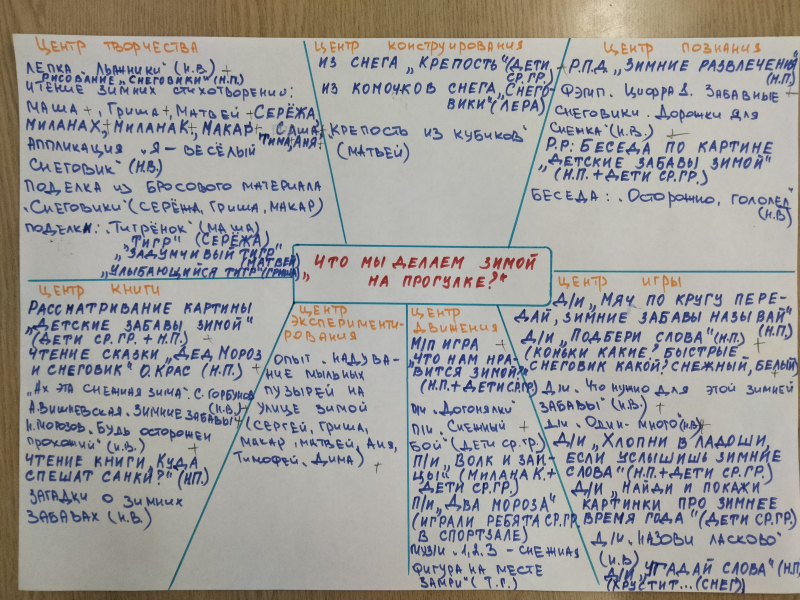 Центр творчества
Лепка „Лыжники" (Н.В.) +
Рисование „Снеговики" (Н.П.)
Чтение зимних стихотворений:
Маша +, Гриша +, Матвей + Серёжа
Милана Х.+ Милана К.+ Макар + Саша +
Тима + Аня +
Аппликация „Я - весёлый
снеговик" (Н.В.)
Поделка из бросового материала
„Снеговики" (Серёжа, Гриша, Макар)
Поделки: „Тигрёнок" (Маша)
„Тигр" (Серёжа)
„Задумчивый тигр"
(Матвей)
„Улыбающийся тигр" (Гриша)
Центр конструирования
Из снега „Крепость" (дети
ср.гр.)
Из комочков снега „Снего-
вики" (Лера)
Крепость из кубиков
(Матвей)
Центр познания
Р.П.Д „Зимние развлечения"
(Н.П.)
ФЭМП. Цифра 1. Забавные
снеговики. Дорожки для
Снежка" (Н.В.) +
Р.Р: Беседа по картине
„Детские забавы зимой"
(Н.П. + дети ср.гр.)
Беседа: „Осторожно, гололед"
(Н.В)
„Что мы делаем зимой
на прогулке?"
Центр книги
Рассматривание картины
„Детские забавы зимой"
(дети ср.гр. + Н.П.)
Чтение сказки „Дед Мороз
и снеговик" О. Крас (Н.П.) +
„Ах эта снежная зима" С. Горбунов
(Н.В.) +
А. Вишневская „Зимние забавы"
Н. Морозов „Будь осторожен
прохожий" (Н.В.)
Чтение книги „Куда
спешат санки?" (НП.)
Загадки о зимних
забавах (Н.В.)
Центр
эксперименти-
рования
Опыт „Надува-
ние мыльных
пузырей на
улице зимой
(Сергей, Гриша,
Макар, Матвей, Аня,
Тимофей, Дима) +
Центр
движения
М/П игра
„Что нам нра-
вится зимой?"
(Н.П.+ дети ср.гр)
П/и „Догонялки"
П/и „Снежный +
бой" (дети ср.гр.)
П/и „Волк и зай-
цы" (Милана К.+
дети ср.гр.)
П/и „Два Мороза"
(играли ребята ср.гр.
в спортзале)
1,2,3 - снежная
фигура на месте
замри" (Т.Г.)
Центр игры
Д/и „Мяч по кругу пере-
дай, зимние забавы называй"
(Н.П.)
Д/и „Подбери слова" (Н.П.)
(Коньки какие? Быстрые
Снеговик какой? Снежный, белый)
Д/и „Что нужно для этой зимней
забавы" (Н.В.) +
Д/и „Один - много" (Н.В) +
Д/и „Хлопни в ладоши,
если услышишь зимние
слова" (Н.П.+ дети ср.гр.)
Д/и „Найди и покажи
картинки про зимнее
время года" (дети ср.гр.)
Д/и „Назови ласково"
(Н.В)
Д/и „Угадай слова" (Н.П.)
(хрустит... (снег))